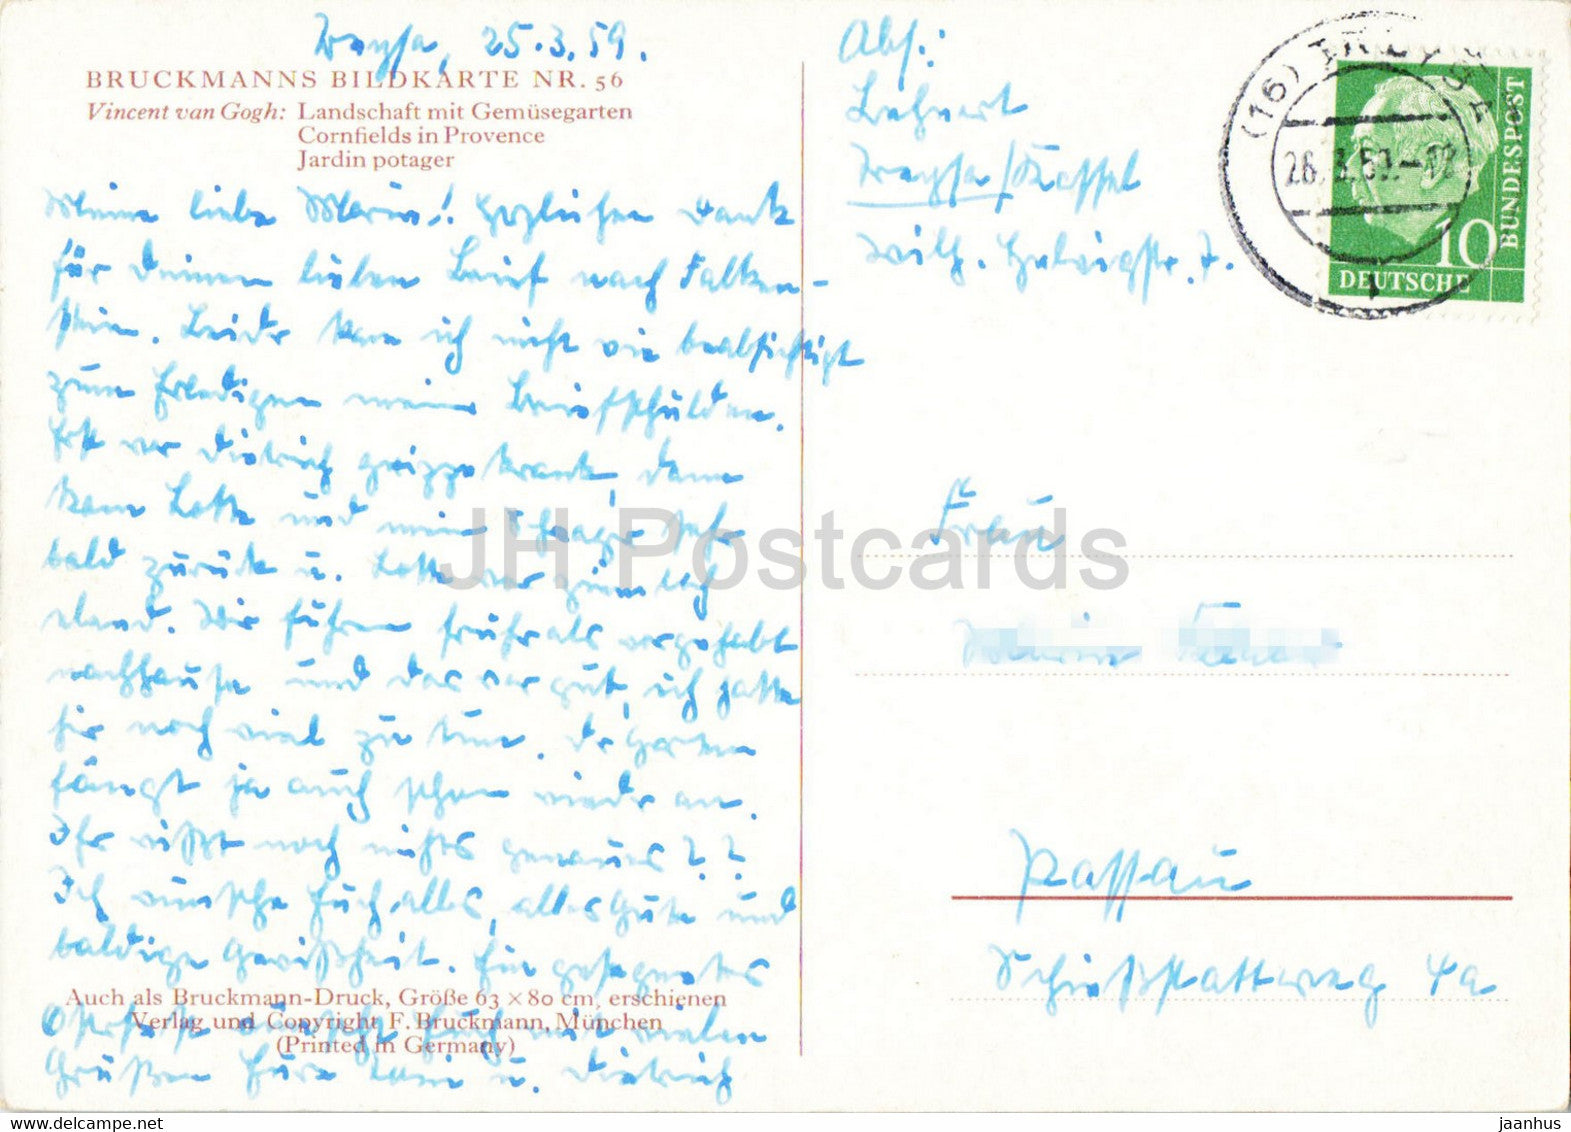 Treysa, 25.3.59.
BRUCKMANNS BILDKARTE NR. 56
Vincent van Gogh: Landschaft mit Gemüsegarten
Cornfields in Provence
Jardin potager
Meine liebe Maria! Herzlichen Dank
für Deinen lieben Brief nach Falken-
stein. Leider kam ich nicht wie beabsichtigt
zum Erledigen meiner Briefschulden.
Erst war Dietrich grippekrank, dann
kam Lotte und mein Schwager sehr
bald zurück u. Lotte war ziemlich
elend. Wir fuhren früher als vorgehabt
nachhause und das war gut, ich hatte
hier noch viel zu tun. Der Garten
fängt ja auch schon wieder an.
Ihr wißt noch nichts genaues??
Ich wünsche Euch alles, alles Gute und
baldige Gewißheit. Ein gesegnetes
Auch als Bruckmann-Druck, Größe 63 × 80 cm, erschienen
Osterfest wünscht Euch mit vielen
Verlag und Copyright F. Bruckmann, München
(Printed in Germany)
Grüßen Eure u. Dietrich
Abs.:
Lehnert
Treysa/Kassel
Wilh. Helwigstr. 7.
(16) TREYSA
26.3.59.-12
10
DEUTSCHE
BUNDESPOST
Frau
Passau
Schießstattweg 4a
JH Postcards
delcampe.net
jaanhus